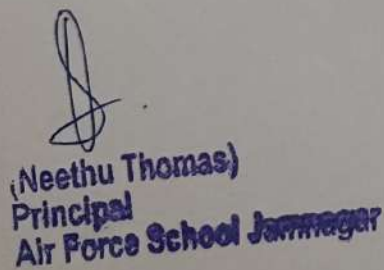 (Neethu Thomas)
Principal
Air Force School Jamnagar